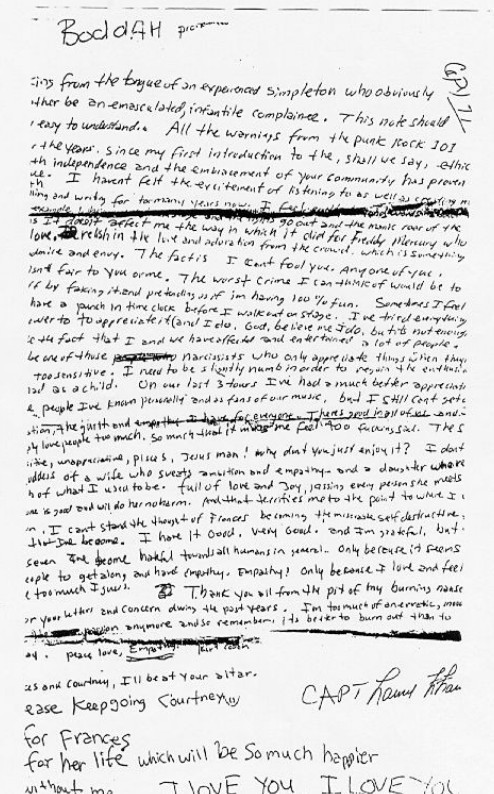 BoddAH pronounced
CAPT/L
ing from the tongue of an experienced simpleton who obviously
ther be an emasculated, infantile complainee. This note should
easy to understand. All the warnings from the punk rock 101
the years. since my first introduction to the, shall we say, ethic
th independence and the embracement of your community has proven
ue. I havent felt the excitement of listening to as well as creating m
ing and writing for too many years now. I feel
go out and the manic roar of the
It doesnt affect me the way in which it did for Freddy Mercury who
love, relish in the love and adoration from the crowd. which is something
dmire and envy. The fact is I cant fool you. Any one of you.
isnt fair to you or me. The worst crime I can think of would be to
ff by faking it and pretending as if im having 100% fun. Sometimes I feel
have a punch in time clock before I walk out on stage. I've tried everything
ower to to appreciate it (and I do, God, believe me I do, but its not enough
te the fact that I and we have affected and entertained a lot of people.
be one of those narcissists who only appreciate things when they
too sensitive. I need to be slightly numb in order to regain the enthusia
had as a child. On our last 3 tours I've had a much better appreciati
e people I've known personally and as fans of our music, but I still cant get o
tion, the guilt and empathy I have for everyone. Theres good in all of us and
ply love people too much. so much that it makes me feel too fucking sad. The s
itive, unappreciative, pisces, Jesus man! why dont you just enjoy it? I dont
oddess of a wife who sweats ambition and empathy and a daughter where
h of what I used to be. full of love and Joy, kissing every person she meets
one is good and will do her no harm. And that terrifies me to the point to where I
n. I cant stand the thought of Frances becoming the miserable self destructive,
that Ive become. I have it Good, very Good. and Im grateful, but
seven Ive become hateful towards all humans in general. Only because it seems
eople to get along and have empathy. Empathy! Only because I love and feel
e too much I guess. Thank you all from the pit of my burning nause
or your letters and concern during the past years. I'm too much of an erratic, moo
passion anymore and so remember, its better to burn out than to
ay. peace love, Empathy. Kurt Cobain
es and Courtney, I'll be at your altar.
ease Keep going Courtney
CAPT
for Frances
for her life which will be so much happier
without me. I LOVE YOU I LOVE YOU